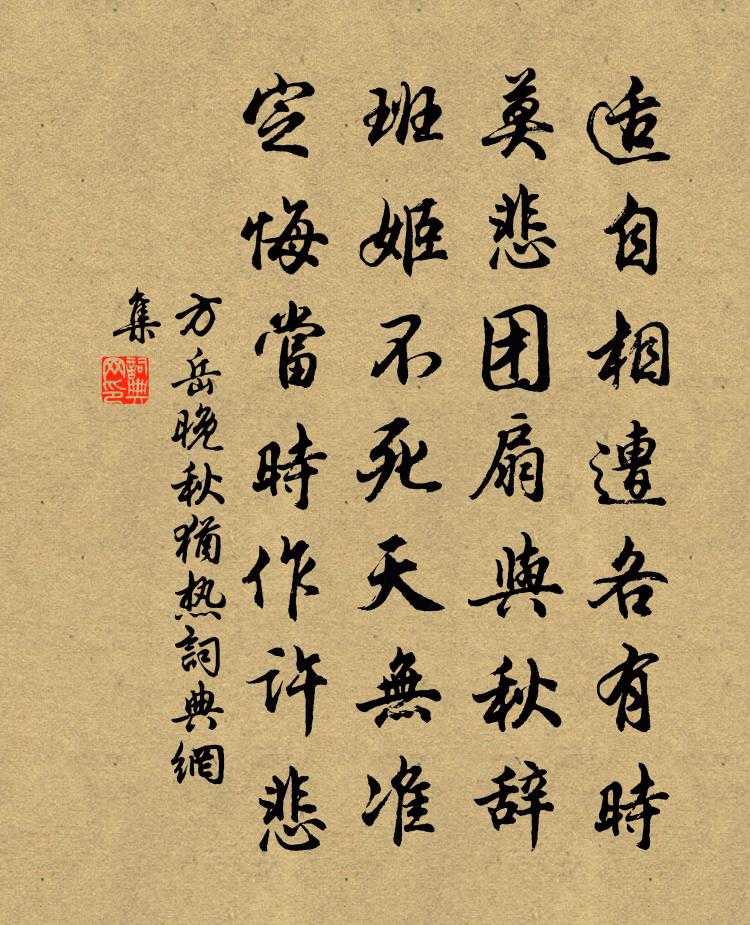 适自相遭各有時
莫悲团扇與秋辞
班姬不死天無准
定悔當時作許悲
方岳晚秋猶热詞典網
集
詞典网印